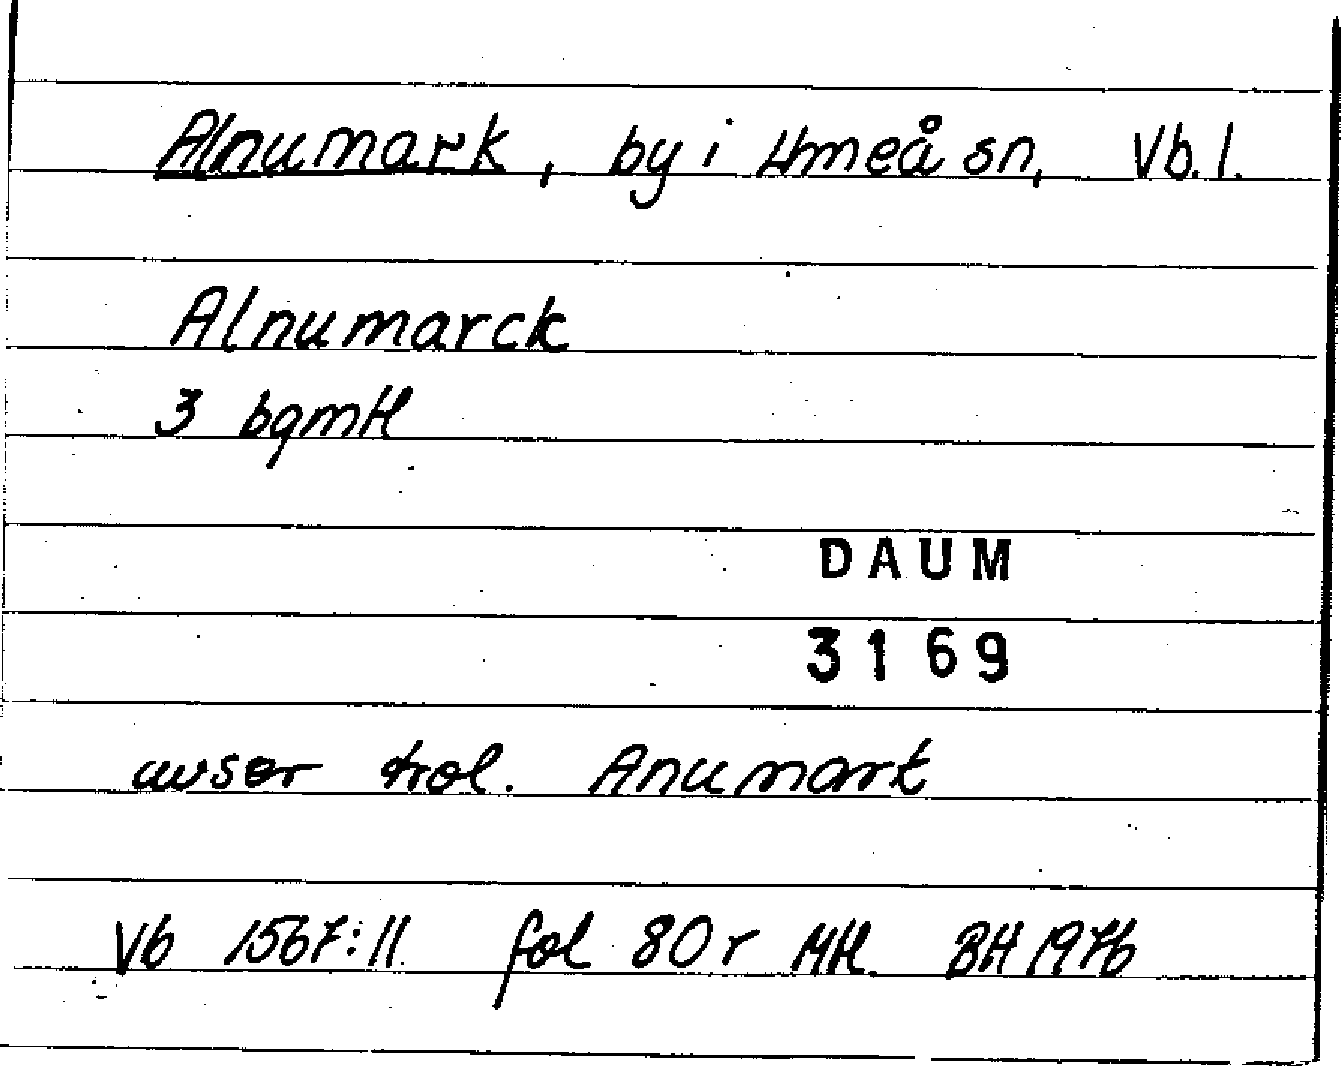 Alnumark, by i Umeå sn, Vb. l.
Alnumarck
3 bgmH
DAUM
3169
avser trol. Anumark
Vb 1567:11 fol 80 r MH. BH 1976